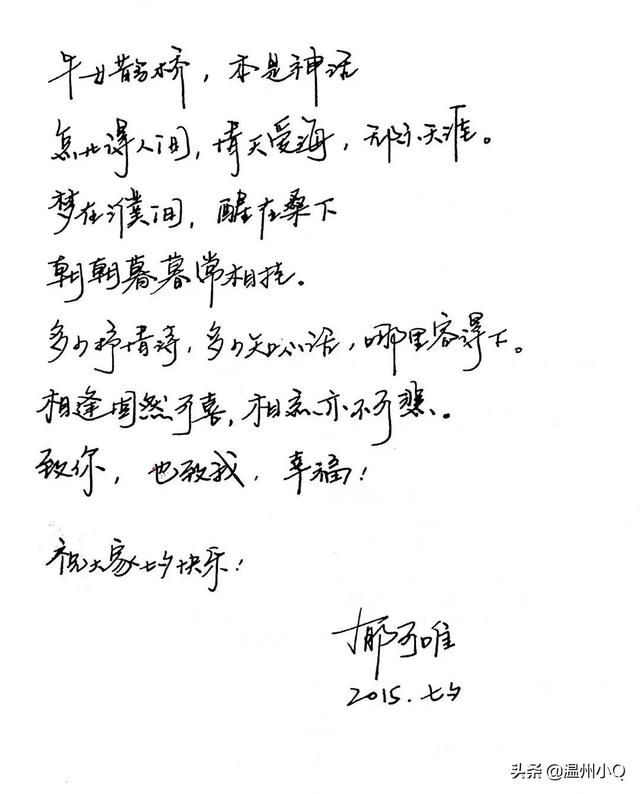 牛女鹊桥，本是神话
怎比得人间，情天爱海，天涯。
梦在濮间，醒在桑下
朝朝暮暮常相挂。
多少抒情诗，多少知心话，哪里容得下。
相逢固然可喜，相忘亦不可悲。
致你，也致我，幸福！
祝大家七夕快乐！
郁可唯
2015.七夕
头条 @温州小Q